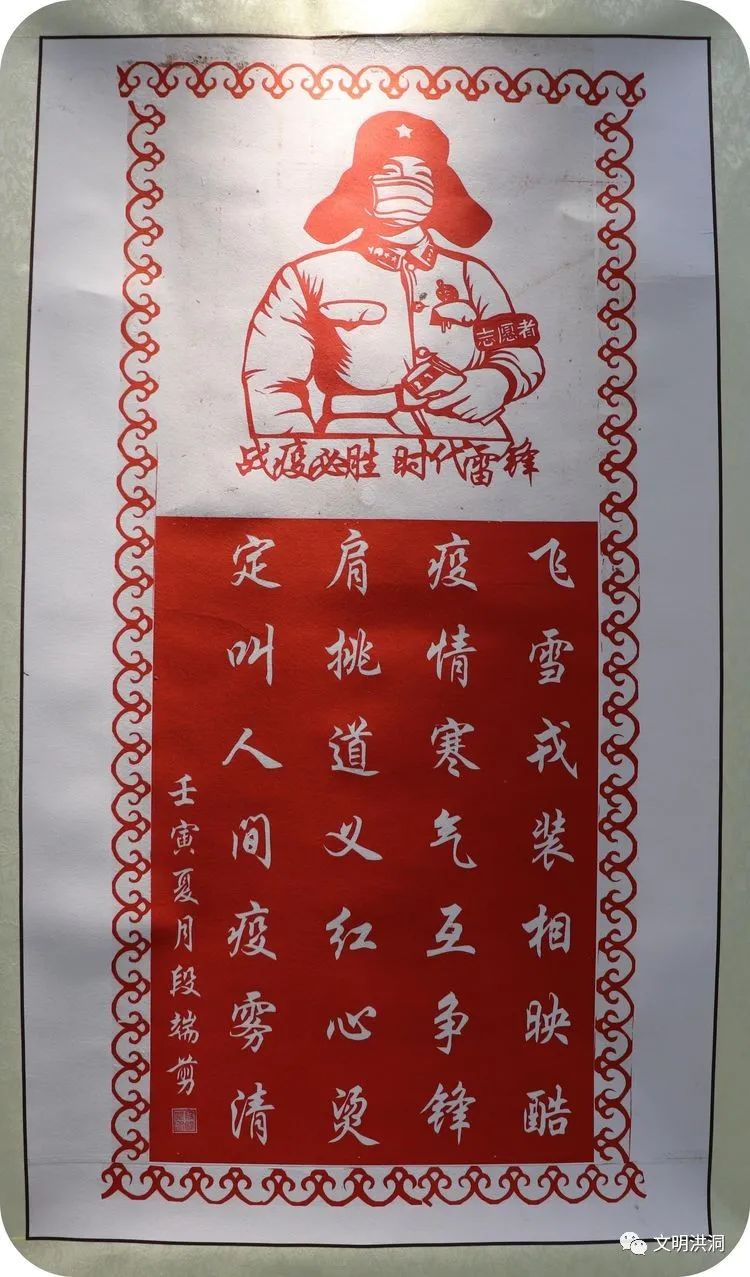 志愿者
战疫必胜 时代雷锋
飞雪戎装相映酷
疫情寒气互争锋
肩挑道义红心烫
定叫人间疫雾清
壬寅夏月段端剪
文明洪洞